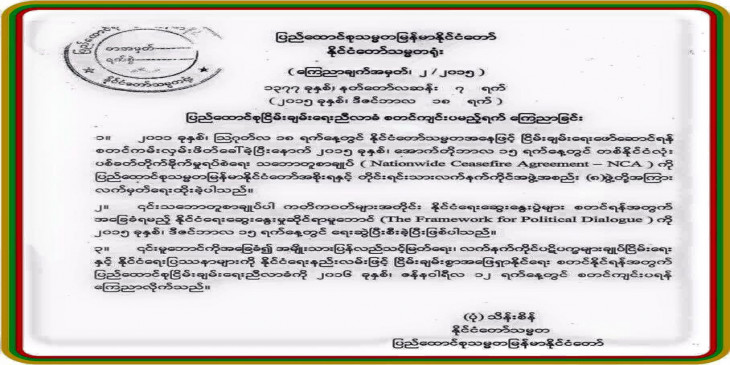 စာအမှတ်
ရက်စွဲ
နိုင်ငံတော်သမ္မတရုံး
ပြည်ထောင်စုသမ္မတမြန်မာနိုင်ငံတော်
နိုင်ငံတော်သမ္မတရုံး
( ကြေညာချက်အမှတ်၊ ၂ / ၂၀၁၅ )
၁၃၇၇ ခုနှစ်၊ နတ်တော်လဆန်း ၇ ရက်
( ၂၀၁၅ ခုနှစ်၊ ဒီဇင်ဘာလ ၁၈ ရက် )
ပြည်ထောင်စုငြိမ်းချမ်းရေးညီလာခံ စတင်ကျင်းပမည့်ရက် ကြေညာခြင်း
၁။ ၂၀၁၁ ခုနှစ်၊ ဩဂုတ်လ ၁၈ ရက်နေ့တွင် နိုင်ငံတော်သမ္မတအနေဖြင့် ငြိမ်းချမ်းရေးဖော်ဆောင်ရန်
စတင်ကမ်းလှမ်းဖိတ်ခေါ်ခဲ့ပြီးနောက် ၂၀၁၅ ခုနှစ်၊ အောက်တိုဘာလ ၁၅ ရက်နေ့တွင် တစ်နိုင်ငံလုံး
ပစ်ခတ်တိုက်ခိုက်မှုရပ်စဲရေး သဘောတူစာချုပ် ( Nationwide Ceasefire Agreement – NCA ) ကို
ပြည်ထောင်စုသမ္မတမြန်မာနိုင်ငံတော်အစိုးရနှင့် တိုင်းရင်းသားလက်နက်ကိုင်အဖွဲ့အစည်း (၈)ဖွဲ့တို့အကြား
လက်မှတ်ရေးထိုးခဲ့ပါသည်။
၂။ ၎င်းသဘောတူစာချုပ်ပါ ကတိကဝတ်များအတိုင်း နိုင်ငံရေးဆွေးနွေးပွဲများ စတင်ရန်အတွက်
အခြေခံရမည့် နိုင်ငံရေးဆွေးနွေးမှုဆိုင်ရာမူဘောင် (The Framework for Political Dialogue ) ကို
၂၀၁၅ ခုနှစ်၊ ဒီဇင်ဘာလ ၁၅ ရက်နေ့တွင် ရေးဆွဲပြီးစီးခဲ့ပြီးဖြစ်ပါသည်။
၃။ ၎င်းမူဘောင်ကိုအခြေခံ၍ အမျိုးသားပြန်လည်သင့်မြတ်ရေး၊ လက်နက်ကိုင်ပဋိပက္ခများချုပ်ငြိမ်းရေး
နှင့် နိုင်ငံရေးပြဿနာများကို နိုင်ငံရေးနည်းလမ်းဖြင့် ငြိမ်းချမ်းစွာအဖြေရှာနိုင်ရေး စတင်နိုင်ရန်အတွက်
ပြည်ထောင်စုငြိမ်းချမ်းရေးညီလာခံကို ၂၀၁၆ ခုနှစ်၊ ဇန်နဝါရီလ ၁၂ ရက်နေ့တွင် စတင်ကျင်းပရန်
ကြေညာလိုက်သည်။
(ပုံ) သိန်းစိန်
နိုင်ငံတော်သမ္မတ
ပြည်ထောင်စုသမ္မတမြန်မာနိုင်ငံတော်